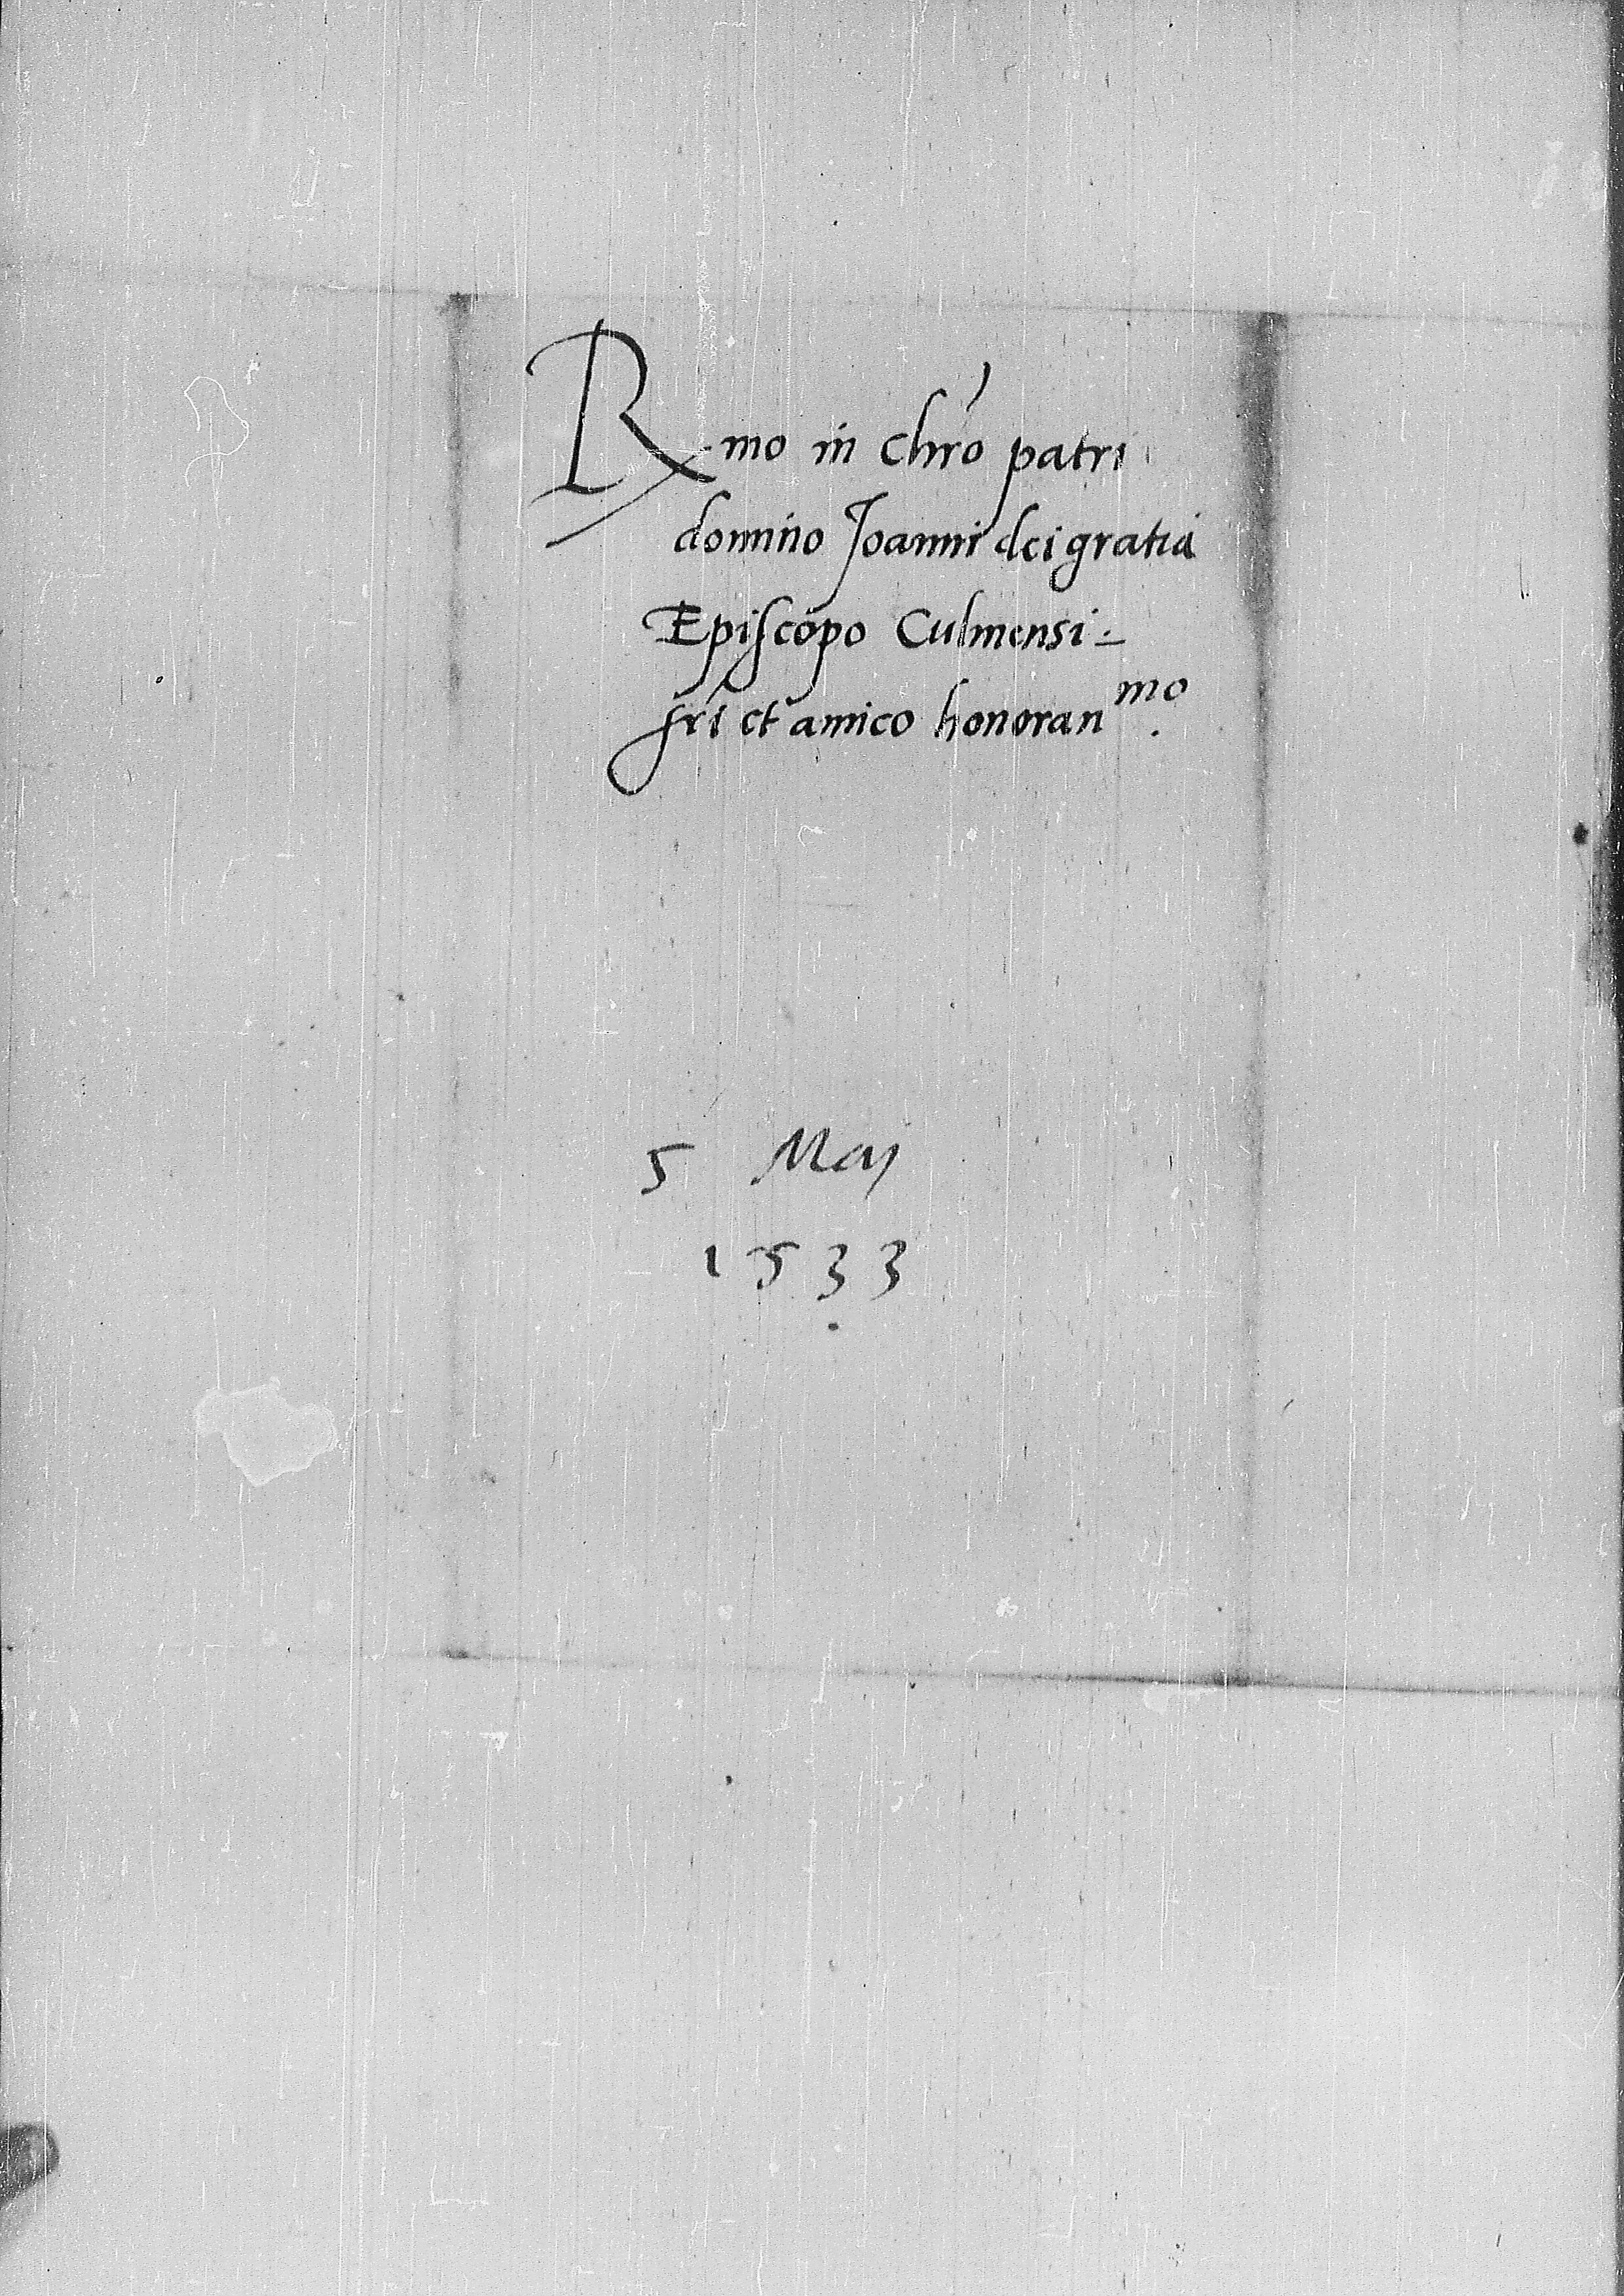 Rmo in chro patri
domino Joanni dei gratia
Episcopo Culmensi.
fri et amico honoran mo.
5 Maj
1533